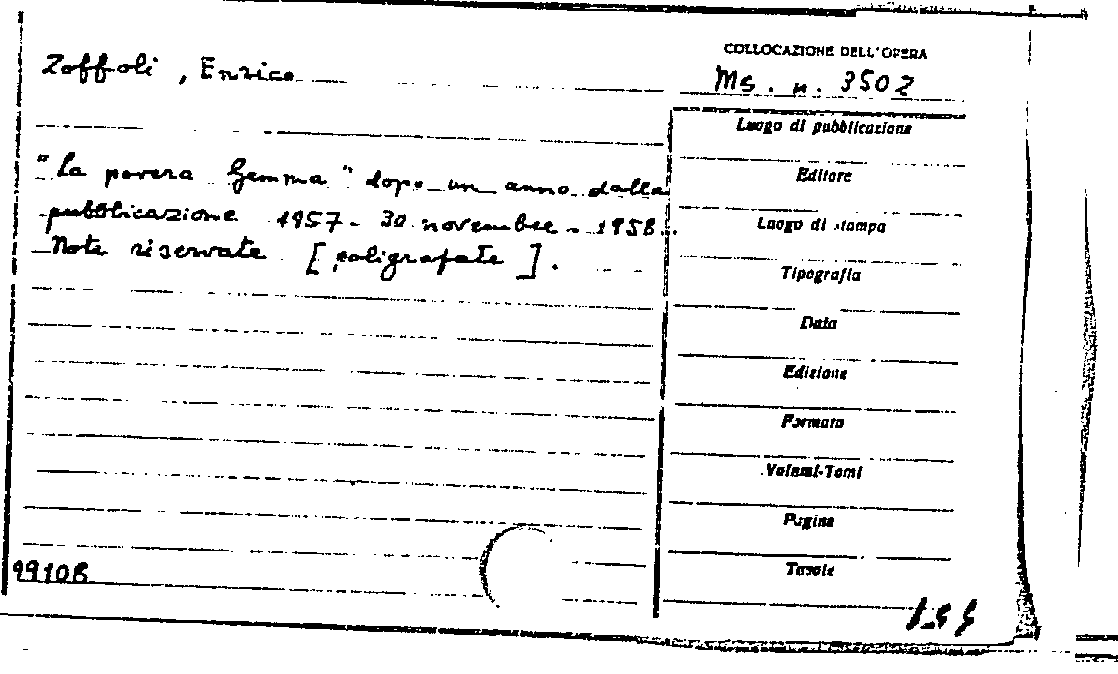 Zoffoli, Enrico
COLLOCAZIONE DELL'OPERA
Ms. n. 3502
"La povera Gemma" dopo un anno dalla
pubblicazione 1957 - 30 novembre - 1958.
Note riservate [poligrafate].
Luogo di pubblicazione
Editore
Luogo di stampa
Tipografia
Data
Edizione
Formato
Volumi-Tomi
Pagine
Tavole